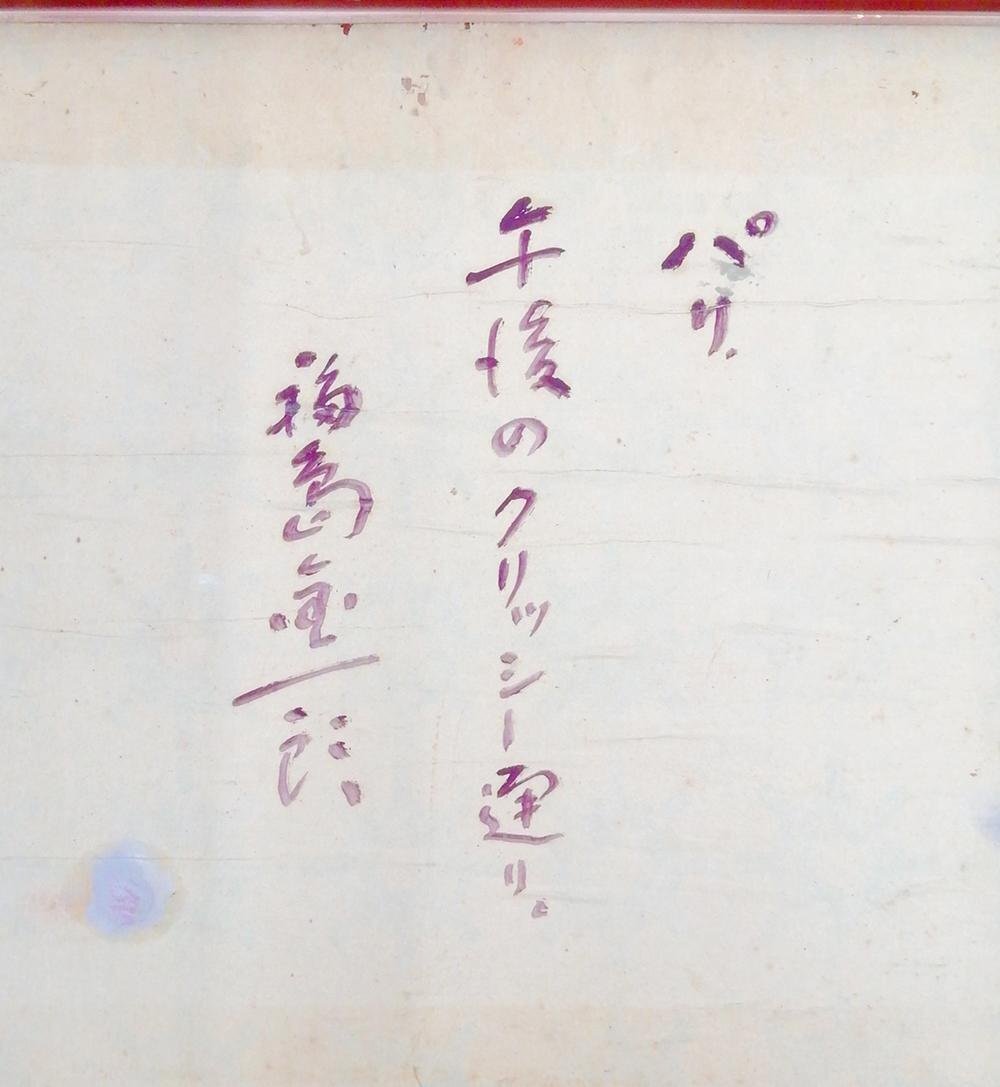 パリ.
午後のクリッシー通り。
福島金一郎